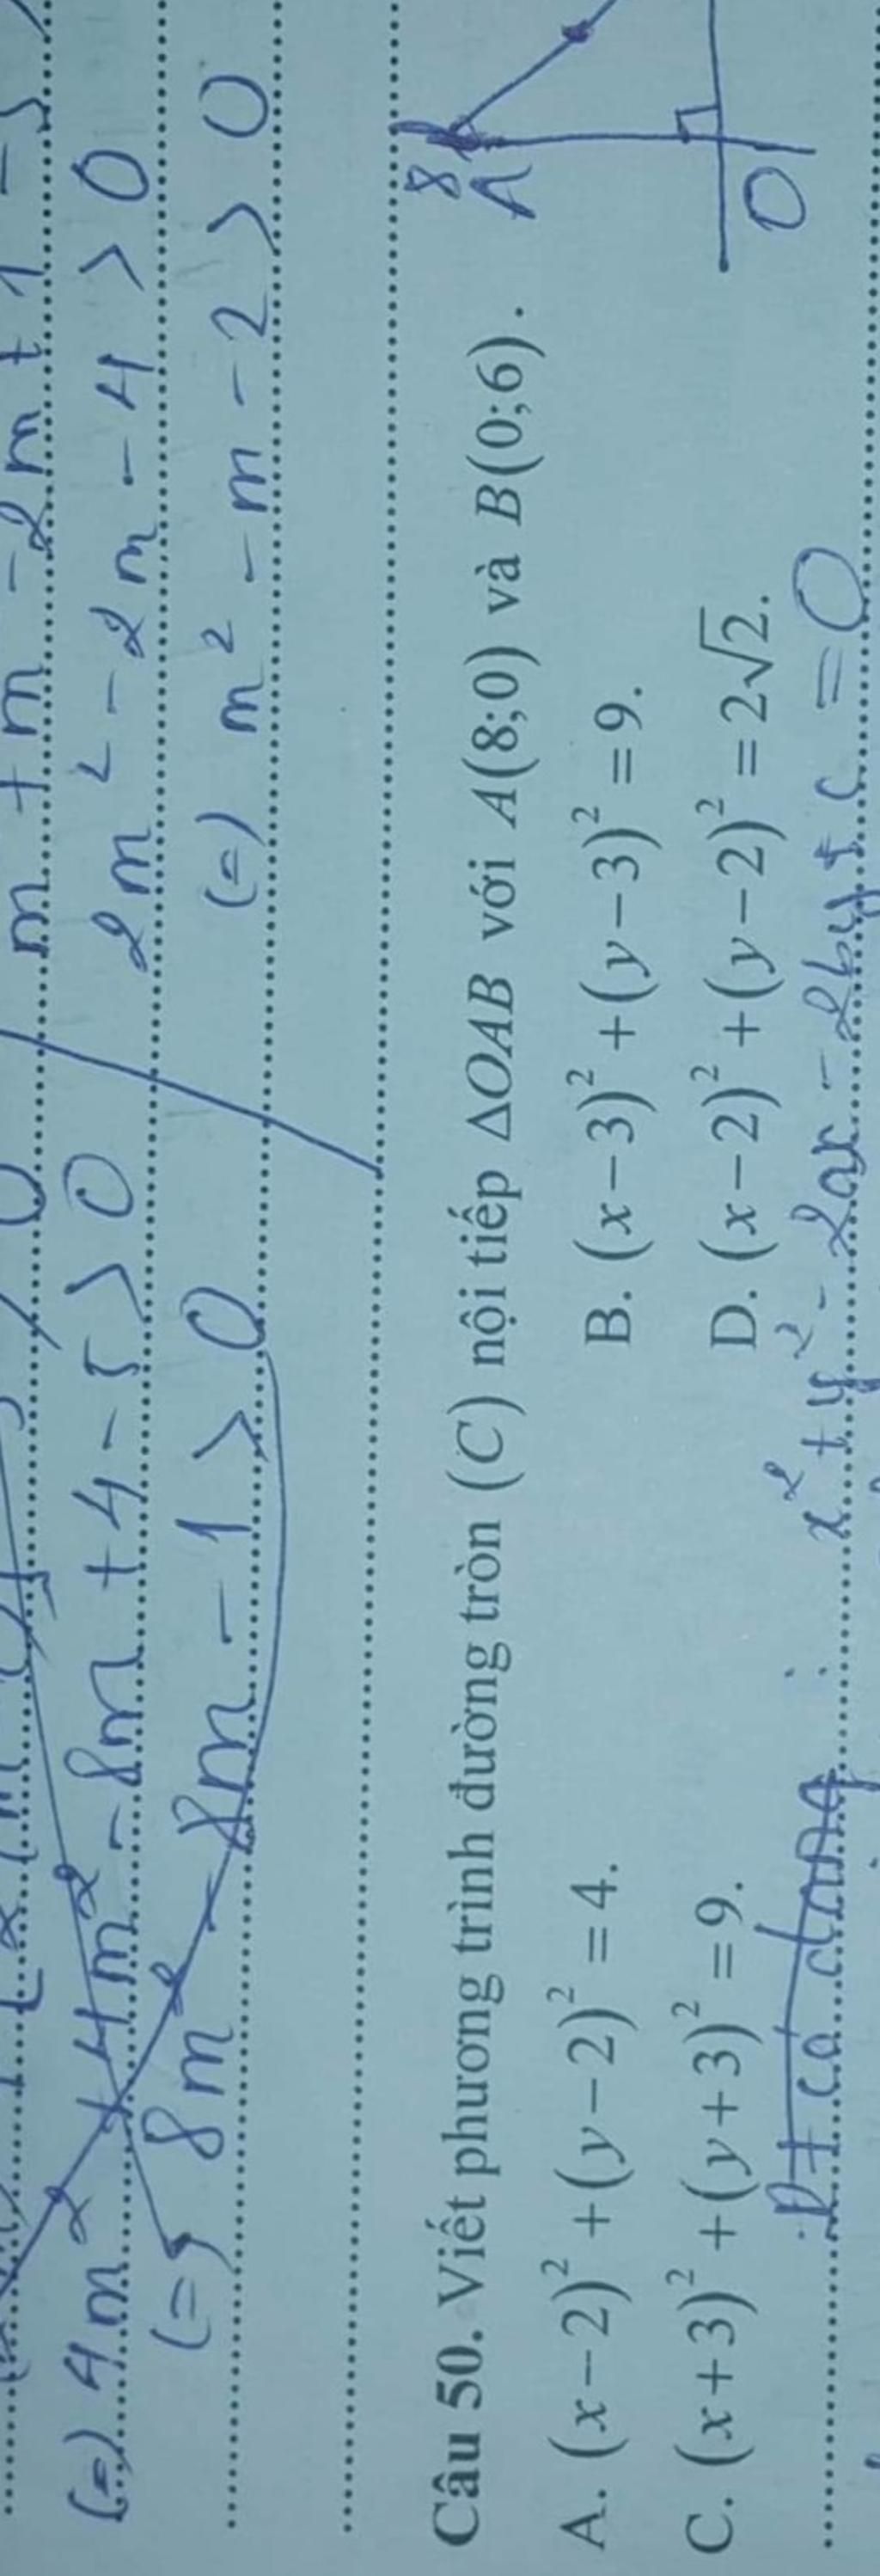 m + m - 2m + 1 - 5
(=) 4m² + 4m² - 8m + 4 - 5 > 0
2m² - 2m - 4 > 0
(=) 8m² - 8m - 1 > 0
(=) m² - m - 2 > 0
Câu 50. Viết phương trình đường tròn (C) nội tiếp ΔOAB với A(8;0) và B(0;6).
A. (x−2)² + (y−2)² = 4.
B. (x−3)² + (y−3)² = 9.
C. (x+3)² + (y+3)² = 9.
D. (x−2)² + (y−2)² = 2√2.
8
A
O
Pt có dạng : x² + y² - 2ax - 2by + c = 0